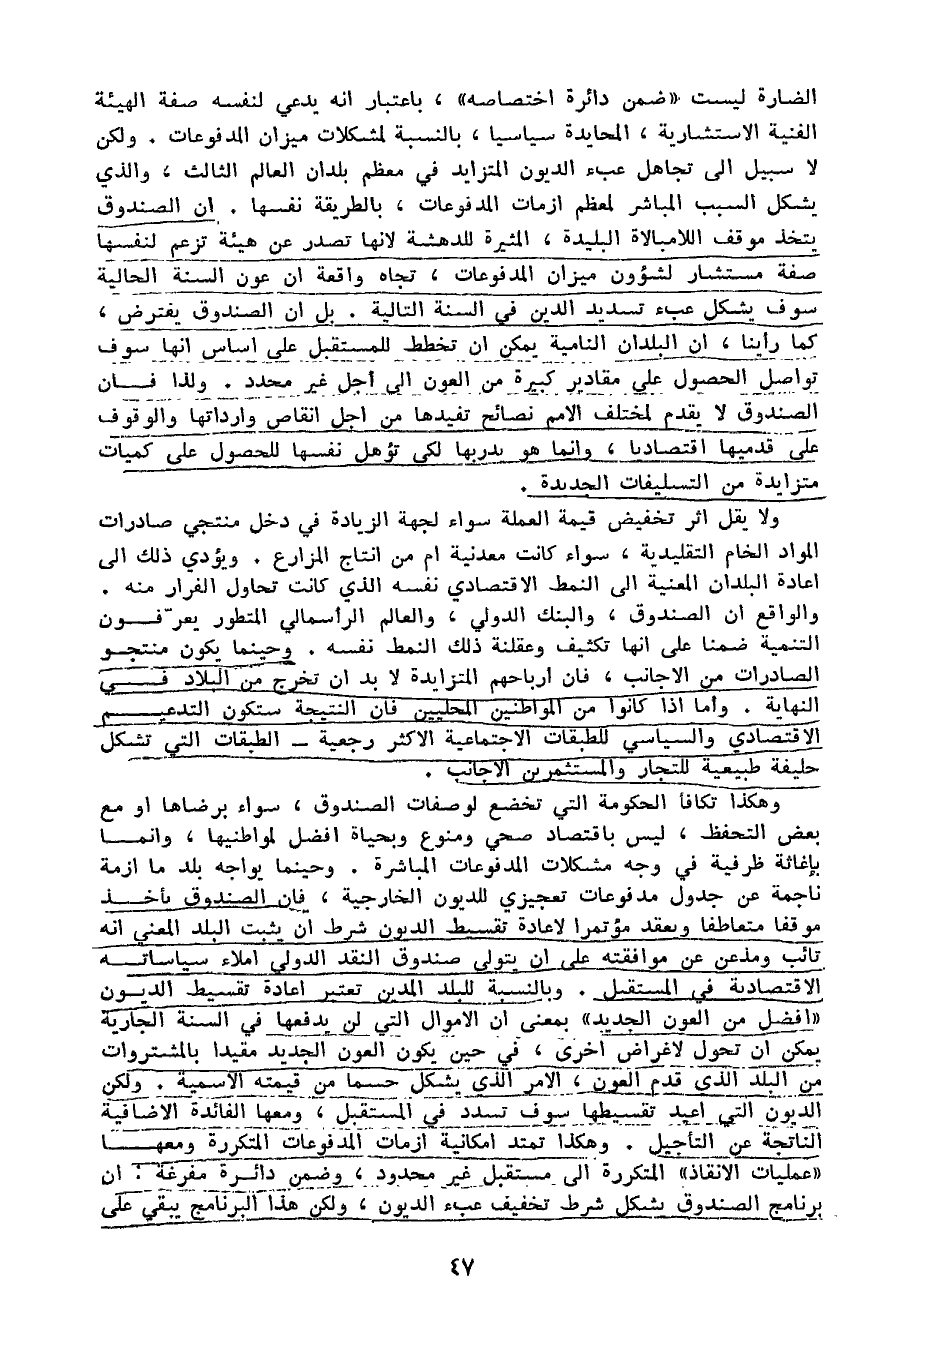 الضارة ليست «ضمن دائرة اختصاصه» ، باعتبار انه يدعي لنفسه صفة الهيئة
الفنية الاستشارية ، المحايدة سياسيا ، بالنسبة لمشكلات ميزان المدفوعات . ولكن
لا سبيل الى تجاهل عبء الديون المتزايد في معظم بلدان العالم الثالث ، والذي
يشكل السبب المباشر لمعظم ازمات المدفوعات ، بالطريقة نفسها . ان الصندوق
يتخذ موقف اللامبالاة البليدة ، المثيرة للدهشة لانها تصدر عن هيئة تزعم لنفسها
صفة مستشار لشؤون ميزان المدفوعات ، تجاه واقعة ان عون السنة الحالية
سوف يشكل عبء تسديد الدين في السنة التالية . بل ان الصندوق يفترض ،
كما رأينا ، ان البلدان النامية يمكن ان تخطط للمستقبل على اساس انها سوف
تواصل الحصول على مقادير كبيرة من العون الى أجل غير محدد . ولذا فـــان
الصندوق لا يقدم لمختلف الامم نصائح تفيدها من اجل انقاص وارداتها والوقوف
على قدميها اقتصاديا ، وانما هو يدربها لكي تؤهل نفسها للحصول على كميات
متزايدة من التسليفات الجديدة .
ولا يقل اثر تخفيض قيمة العملة سواء لجهة الزيادة في دخل منتجي صادرات
المواد الخام التقليدية ، سواء كانت معدنية ام من انتاج المزارع . ويؤدي ذلك الى
اعادة البلدان المعنية الى النمط الاقتصادي نفسه الذي كانت تحاول الفرار منه .
والواقع ان الصندوق ، والبنك الدولي ، والعالم الرأسمالي المتطور يعرّفـــون
التنمية ضمنا على انها تكثيف وعقلنة ذلك النمط نفسه . وحينما يكون منتجـو
الصادرات من الاجانب ، فان أرباحهم المتزايدة لا بد ان تخرج من البلاد فـــي
النهاية . وأما اذا كانوا من المواطنين المحليين فان النتيجة ستكون التدعيـــم
الاقتصادي والسياسي للطبقات الاجتماعية الاكثر رجعية ــ الطبقات التي تشكل
حليفة طبيعية للتجار والمستثمرين الاجانب .
وهكذا تكافأ الحكومة التي تخضع لوصفات الصندوق ، سواء برضاها او مع
بعض التحفظ ، ليس باقتصاد صحي ومنوع وبحياة افضل لمواطنيها ، وانمـــا
بإغاثة ظرفية في وجه مشكلات المدفوعات المباشرة . وحينما يواجه بلد ما ازمة
ناجمة عن جدول مدفوعات تعجيزي للديون الخارجية ، فان الصندوق يأخـــذ
موقفا متعاطفا ويعقد مؤتمرا لاعادة تقسيط الديون شرط ان يثبت البلد المعني انه
تائب ومذعن عن موافقته على ان يتولى صندوق النقد الدولي املاء سياساتـــه
الاقتصادية في المستقبل . وبالنسبة للبلد المدين تعتبر اعادة تقسيط الديـون
«افضل من العون الجديد» بمعنى ان الاموال التي لن يدفعها في السنة الجارية
يمكن ان تحول لاغراض اخرى ، في حين يكون العون الجديد مقيدا بالمشتروات
من البلد الذي قدم العون ، الامر الذي يشكل حسما من قيمته الاسمية . ولكن
الديون التي اعيد تقسيطها سوف تسدد في المستقبل ، ومعها الفائدة الاضافية
الناتجة عن التأجيل . وهكذا تمتد امكانية ازمات المدفوعات المتكررة ومعهـــا
«عمليات الانقاذ» المتكررة الى مستقبل غير محدود ، وضمن دائـرة مفرغة : ان
برنامج الصندوق يشكل شرط تخفيف عبء الديون ، ولكن هذا البرنامج يبقي على
٤٧